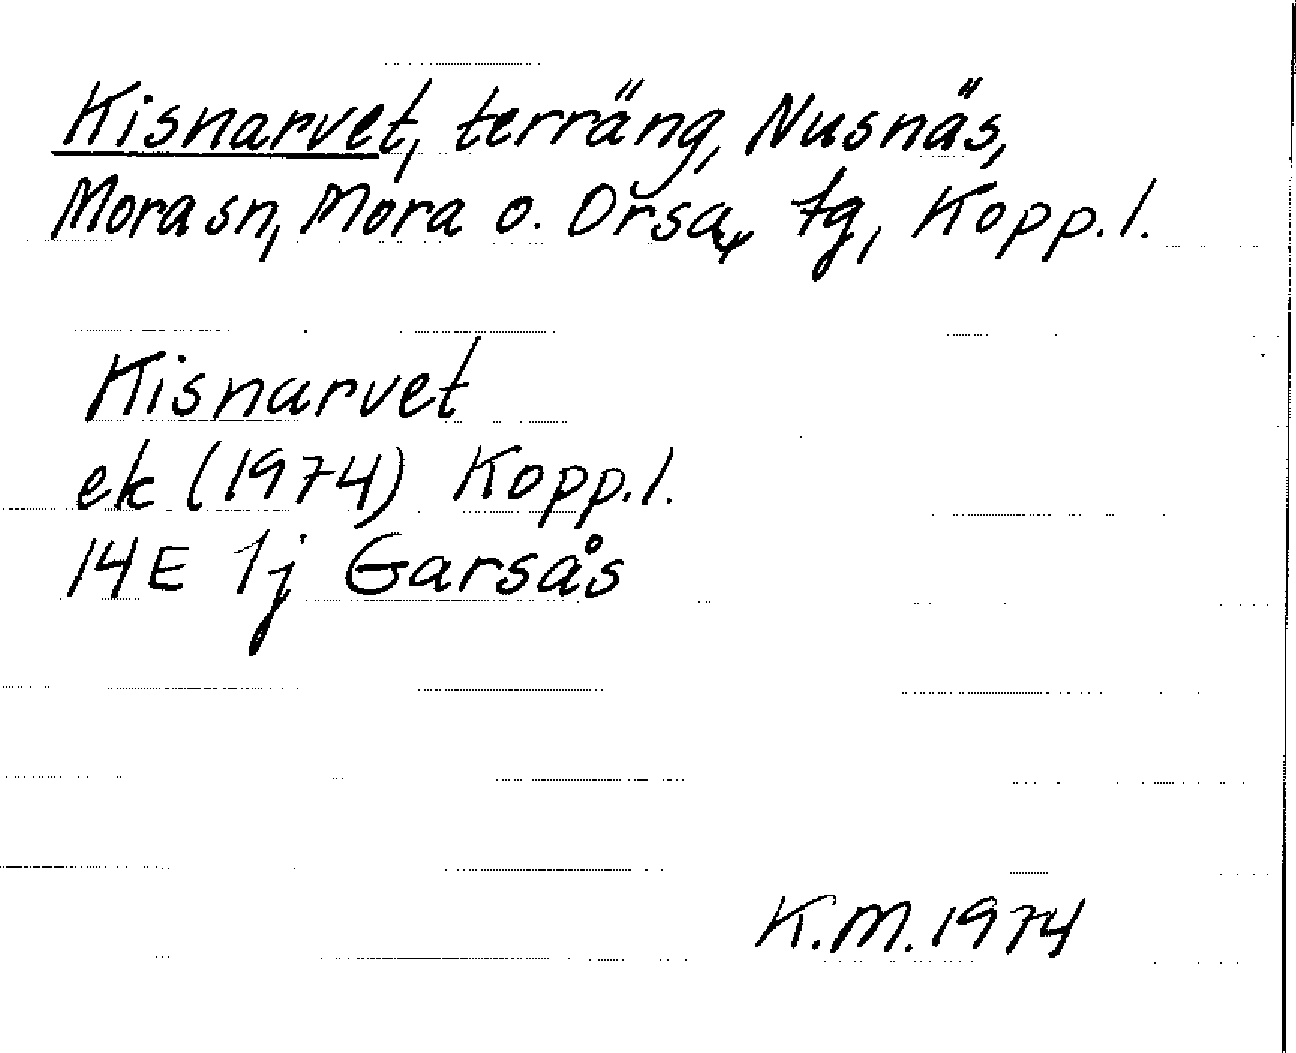 Kisnarvet, terräng, Nusnäs,
Mora sn, Mora o. Orsa, tg, Kopp. l.
Kisnarvet
ek (1974) Kopp. l.
14 E 1j Garsås
K.M. 1974